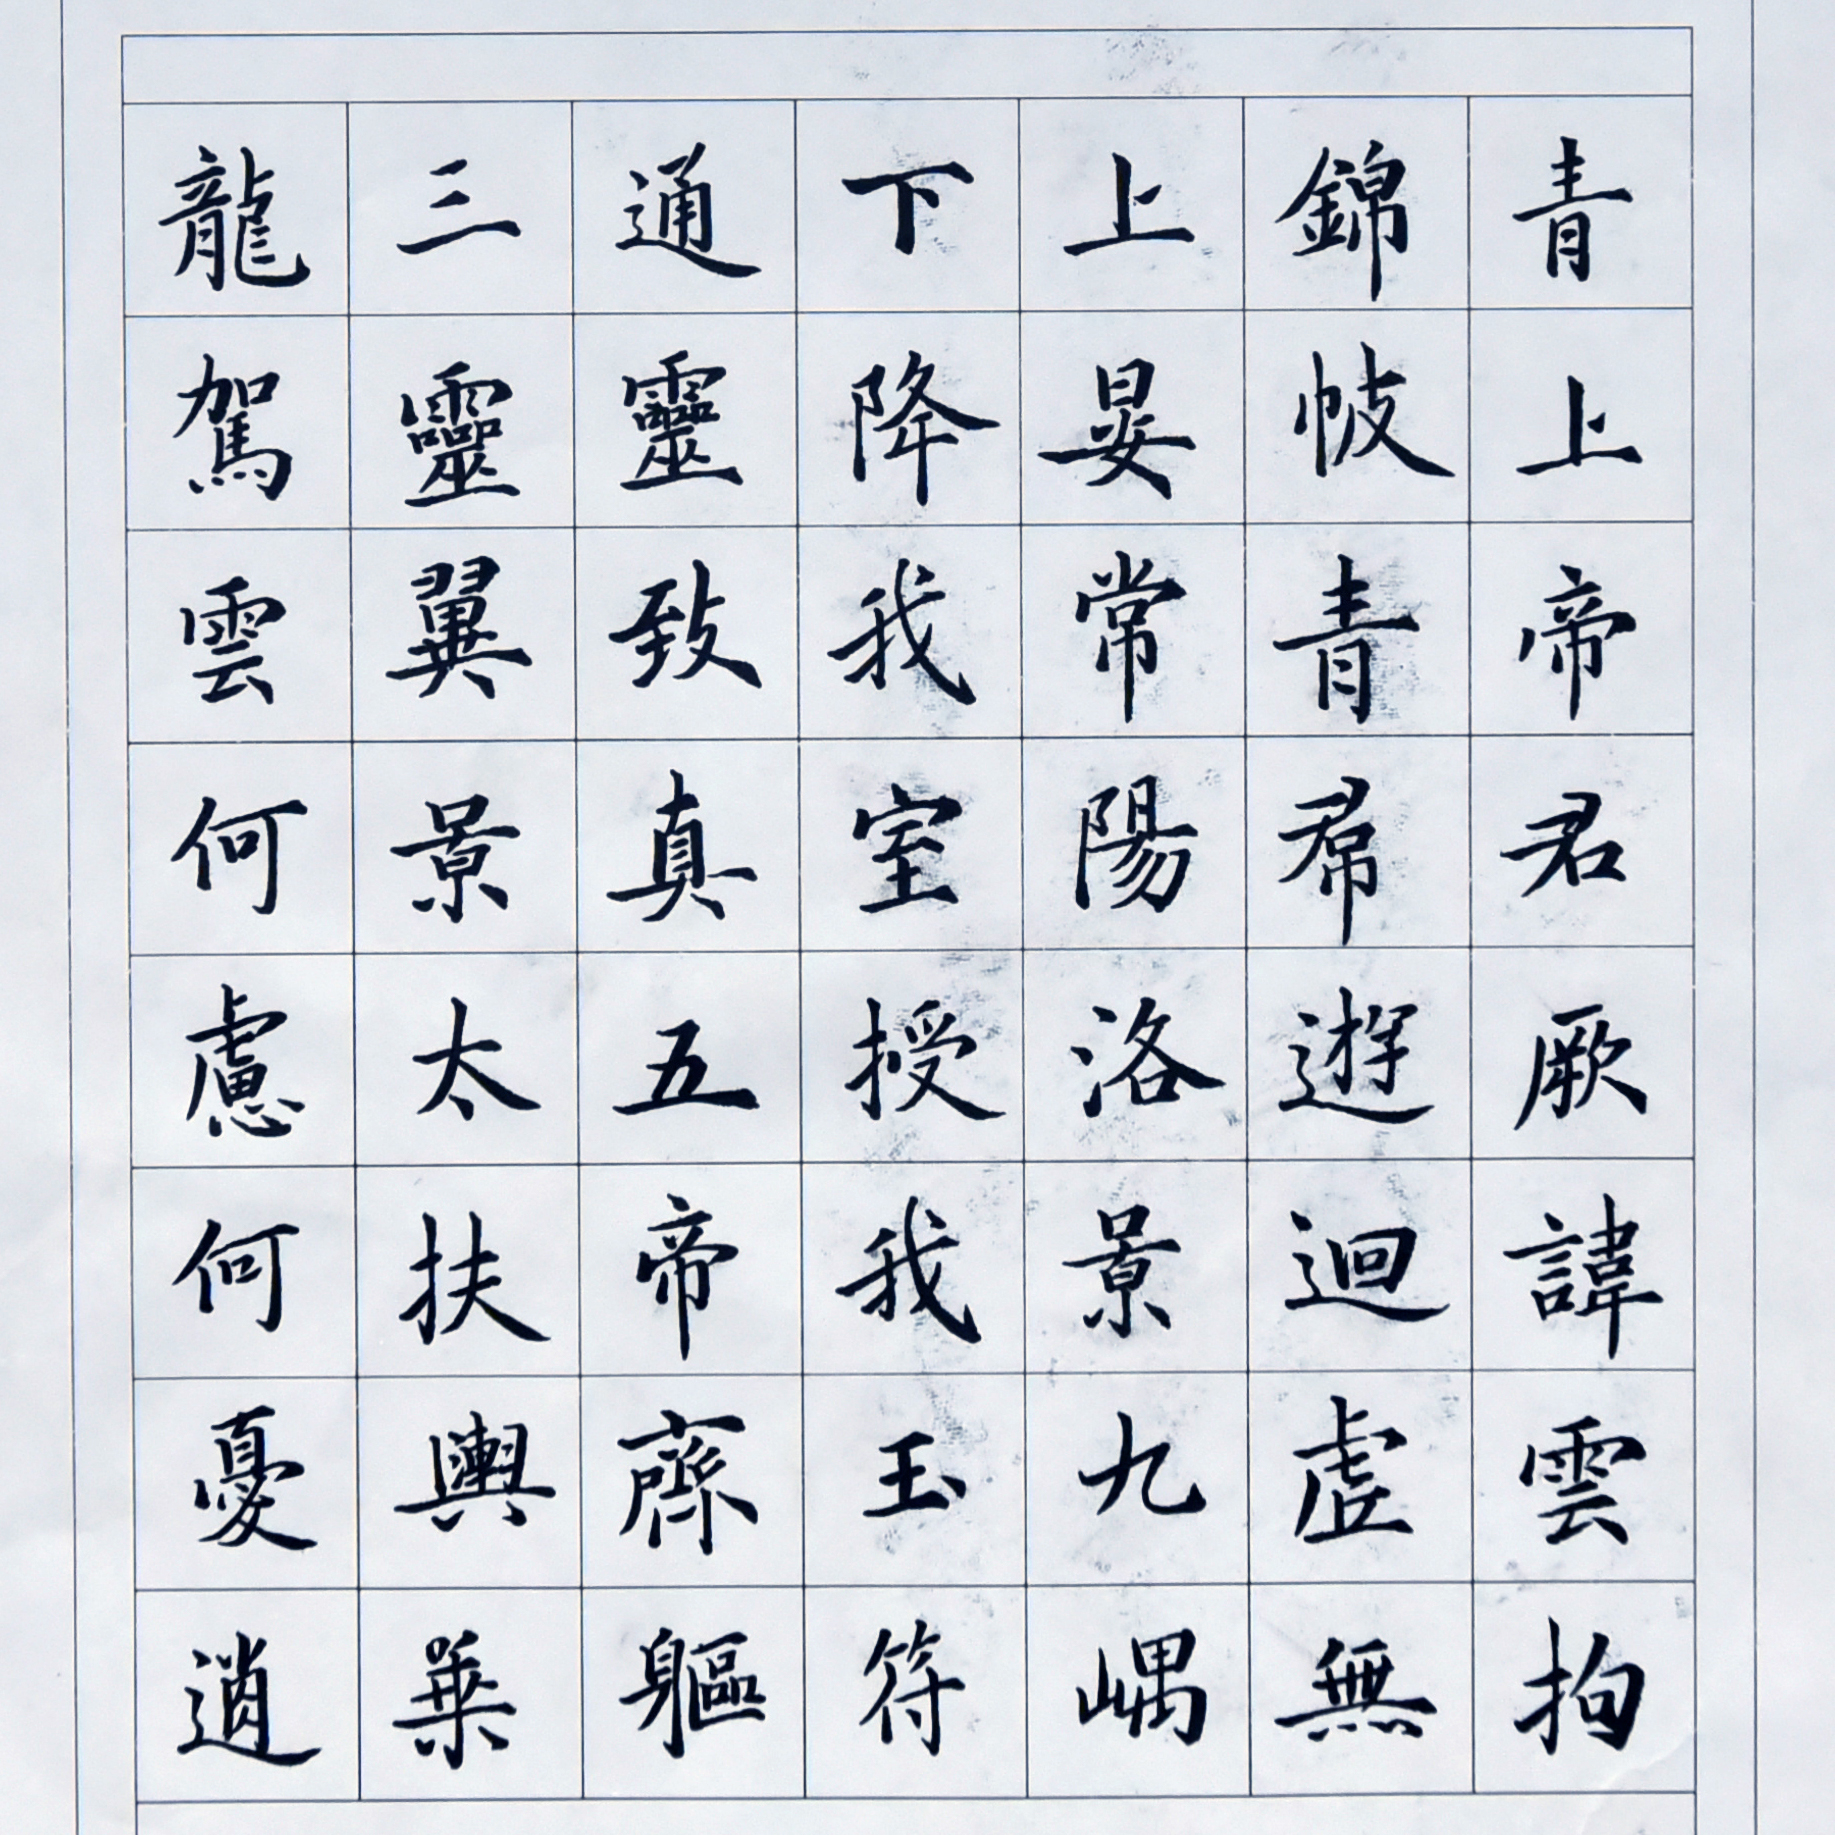 青上帝君厥諱雲拘
錦帔青帬遊迴虛無
上晏常陽洛景九嵎
下降我室授我玉符
通靈致真五帝齊軀
三靈翼景太扶輿葉
龍駕雲何慮何憂逍